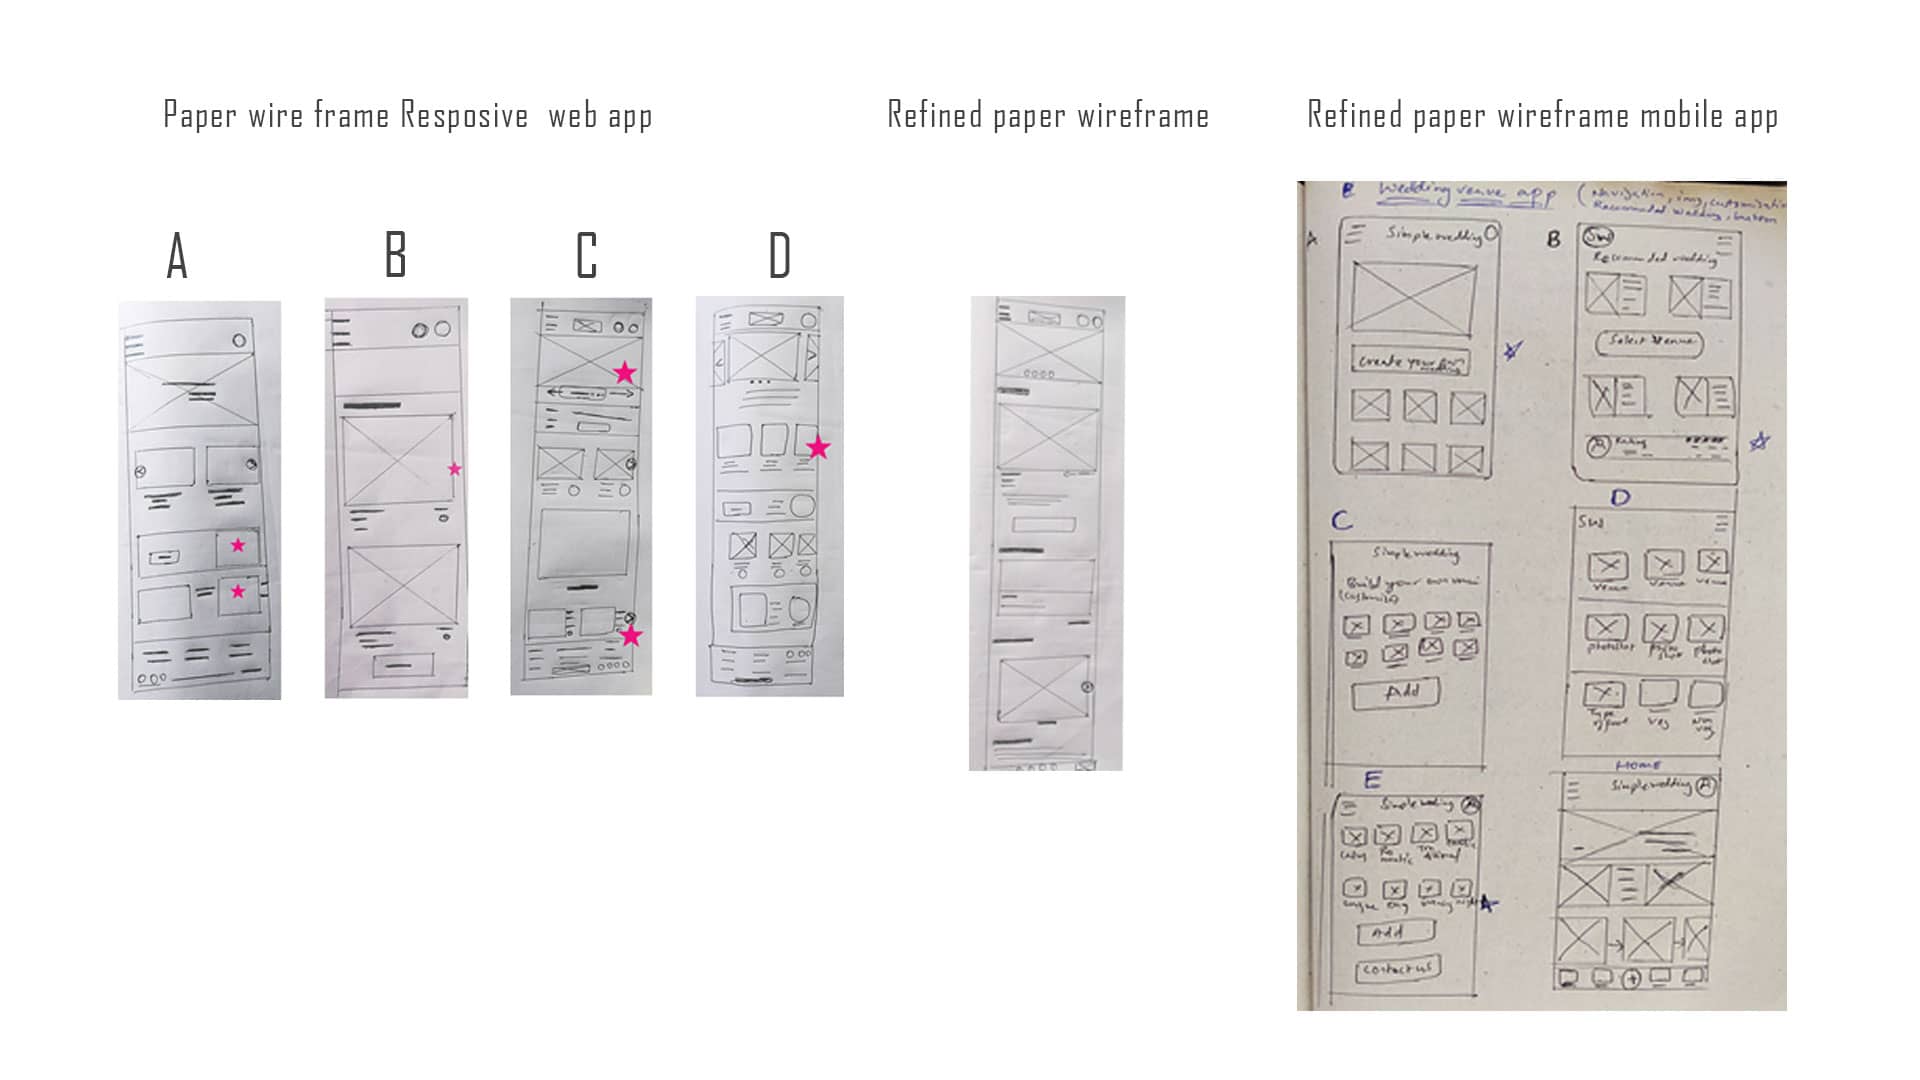 Paper wire frame Resposive web app
Refined paper wireframe
Refined paper wireframe mobile app
A
B
C
D
E Wedding venue app
(Navigation, img, customization
Recommended wedding, button
A
Simple wedding
create your own
wedding
B
SW
Recommended wedding
Select Venue
Rating
C
Simple wedding
Build your own
(customize)
Add
D
SW
venue venue venue
photo
Type of food veg Non veg
E
Simple wedding
Add
Contact us
HOME
Simple wedding